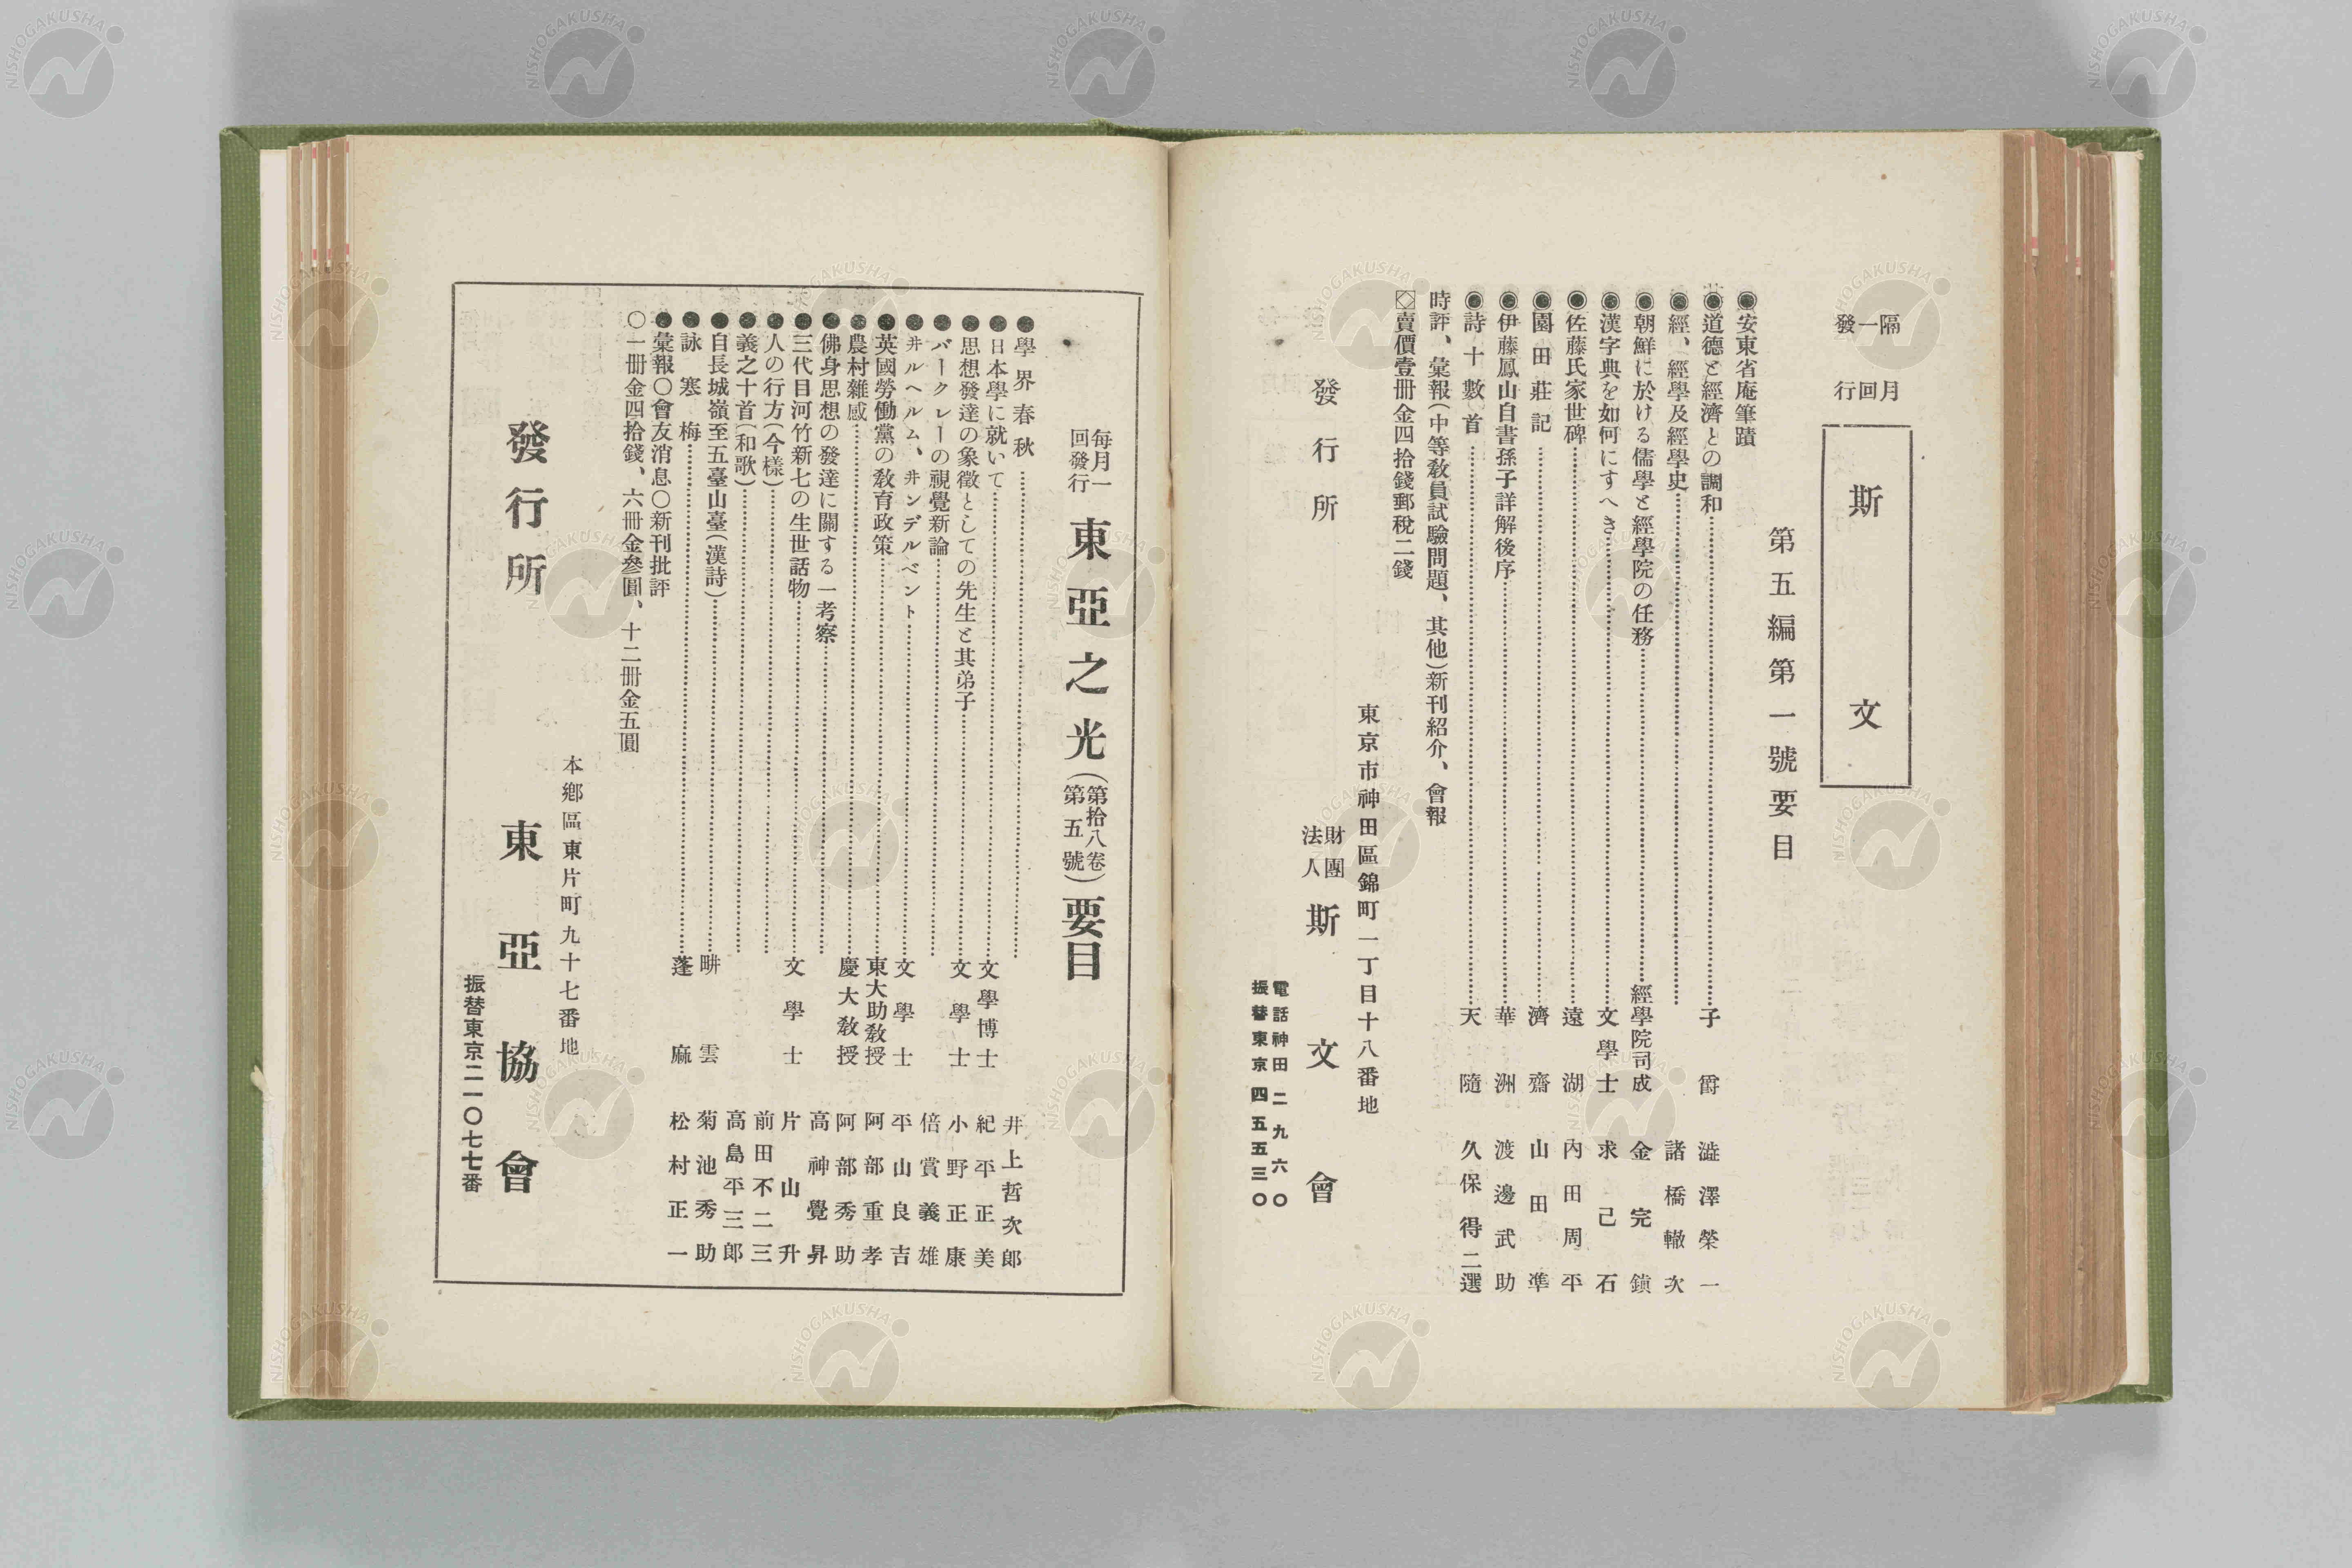 隔月
一回
發行
斯文
第五編第一號要目
◉安東省庵筆蹟
◉道德と經濟との調和………子爵 澁澤榮一
◉經、經學及經學史………諸橋轍次
◉朝鮮に於ける儒學と經學院の任務………經學院司成 金完鎭
◉漢字典を如何にすへき………文學士 求己石
◉佐藤氏家世碑………遠湖 內田周平
◉園田莊記………濟齋 山田準
◉伊藤鳳山自書孫子詳解後序………華洲 渡邊武助
◉詩十數首………天隨 久保得二選
時評、彙報(中等敎員試驗問題、其他)新刊紹介、會報
◇賣價壹冊金四拾錢郵稅二錢
東京市神田區錦町一丁目十八番地
發行所 財團法人 斯文會
電話神田二九六〇
振替東京四五五三〇
每月一回發行 東亞之光(第拾八卷第五號)要目
●學界春秋………井上哲次郎
●日本學に就いて………文學博士 紀平正美
●思想發達の象徵としての先生と其弟子………文學士 小野正康
●バークレーの視覺新論………倍賞義雄
●井ルヘルム、井ンデルベント………文學士 平山良吉
●英國勞働黨の敎育政策………東大助敎授 阿部重孝
●農村雜感………慶大敎授 阿部秀助
●佛身思想の發達に關する一考察………高神覺昇
●三代目河竹新七の生世話物………文學士 片山升
●人の行方(今樣)………前田不二三
●義之十首(和歌)………高島平三郎
●自長城嶺至五臺山臺(漢詩)………畊雲 菊池秀助
●詠寒梅………蓬麻 松村正一
●彙報〇會友消息〇新刊批評
〇一冊金四拾錢、六冊金參圓、十二冊金五圓
本鄕區東片町九十七番地
發行所 東亞協會
振替東京二一〇七七番
NISHOGAKUSHA